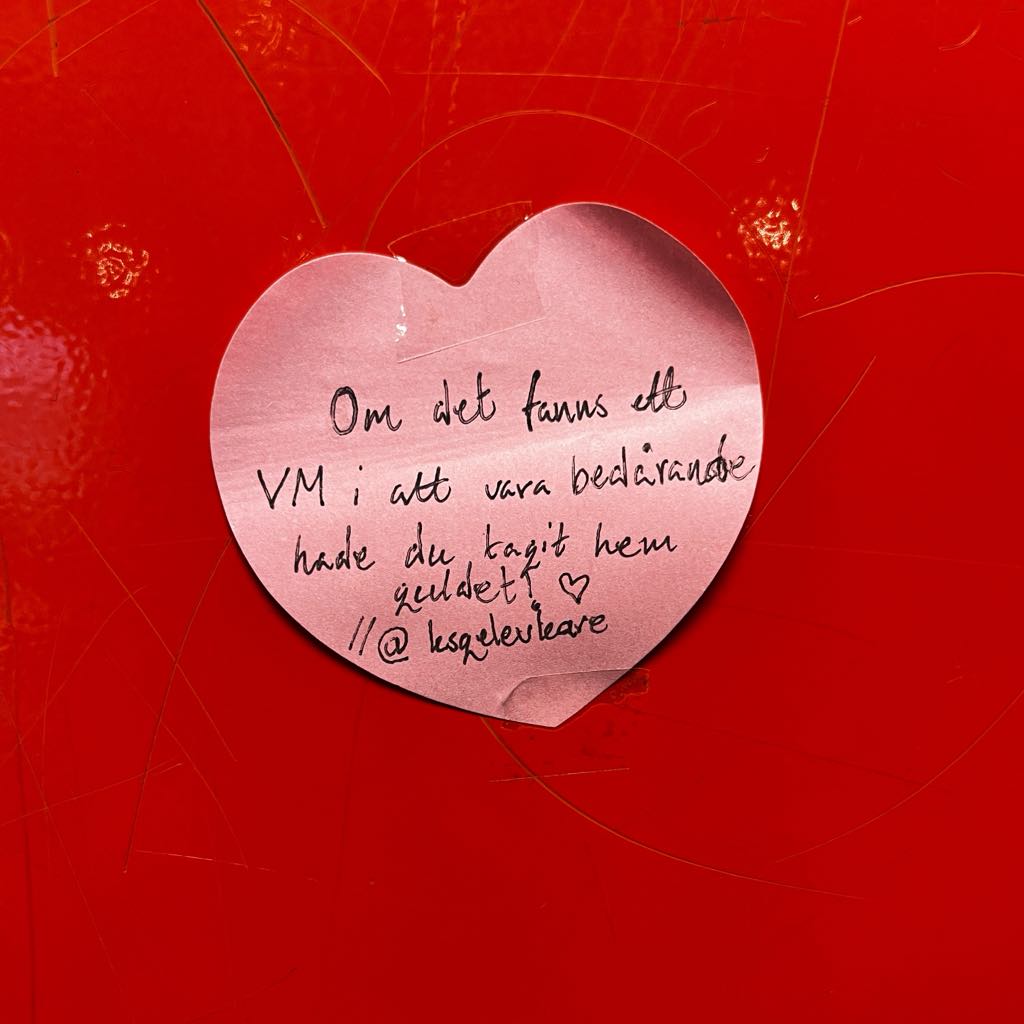 Om det fanns ett
VM i att vara bedårande
hade du tagit hem
guldet! ♡
//@ksgelevkare